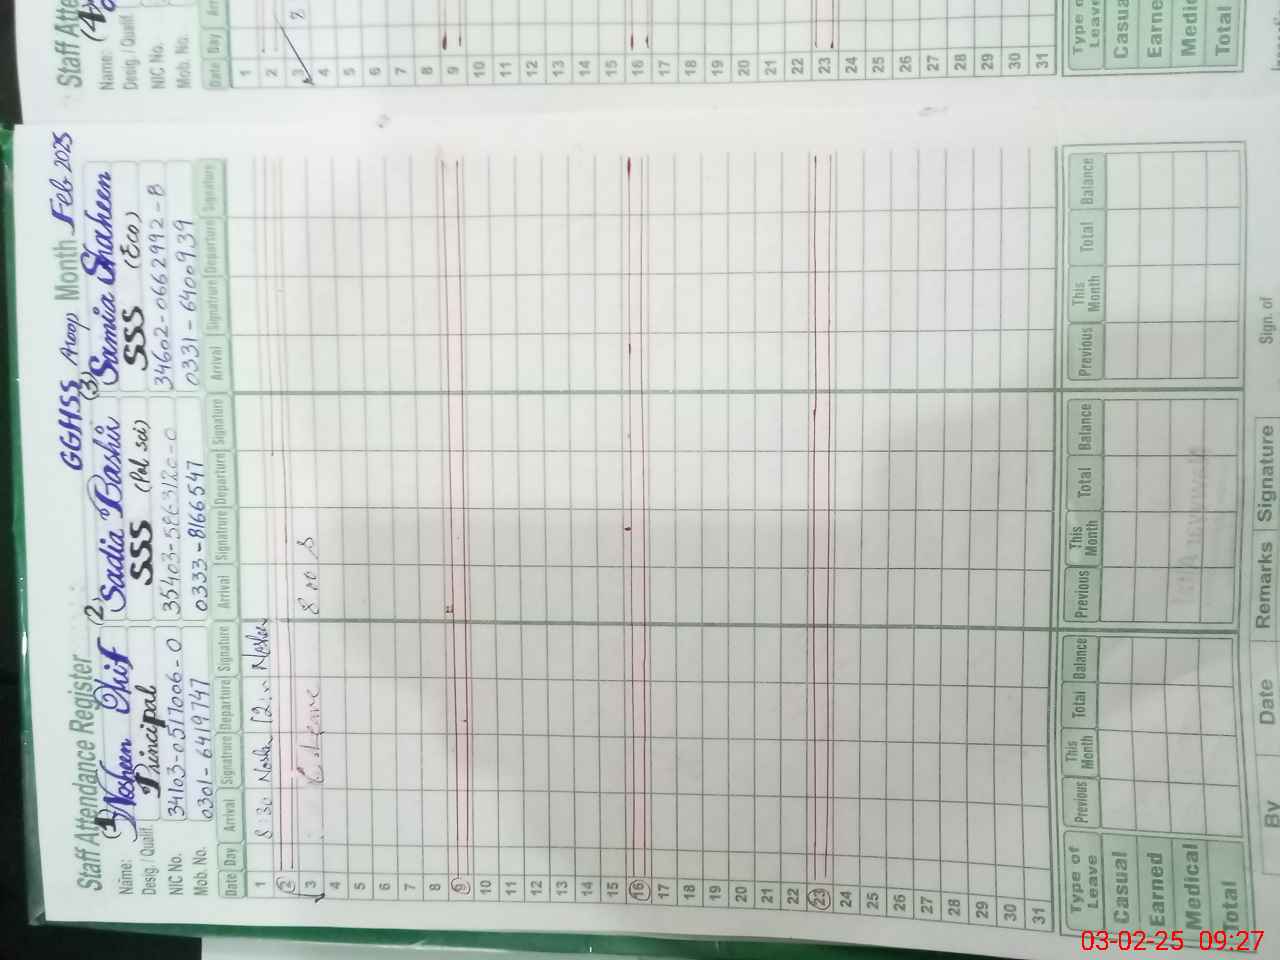 Staff Attendance Register GGHSS Aroop Month Feb 2025
Name: (1) Nosheen (2) Sadia Bashir (3) Samia Shaheen
Desig. / Qualif. Principal SSS (Pol sci) SSS (Eco)
NIC No. 34103-0517006-0 34602-0662992-8
Mob. No. 0301-6419747 0333-8166547 0331-6400939
Date Day Arrival Signatrure Departure Signature Arrival Signatrure Departure Signature Arrival Signatrure Departure Signature
1 8:30
2
3 C. Leave 8 00 S
4
5
6
7
8
9
10
11
12
13
14
15
16
17
18
19
20
21
22
23
24
25
26
27
28
29
30
31
Type of Leave Previous This Month Total Balance Previous This Month Total Balance Previous This Month Total Balance
Casual
Earned
Medical
Total
By Date Remarks Signature Sign. of
Staff Atte
Name: (4)
Desig. / Qualif.
NIC No.
Mob. No.
Date Day Arr
1
2
3 8
4
5
6
7
8
9
10
11
12
13
14
15
16
17
18
19
20
21
22
23
24
25
26
27
28
29
30
31
Type of Leave
Casua
Earne
Medic
Total
03-02-25 09:27